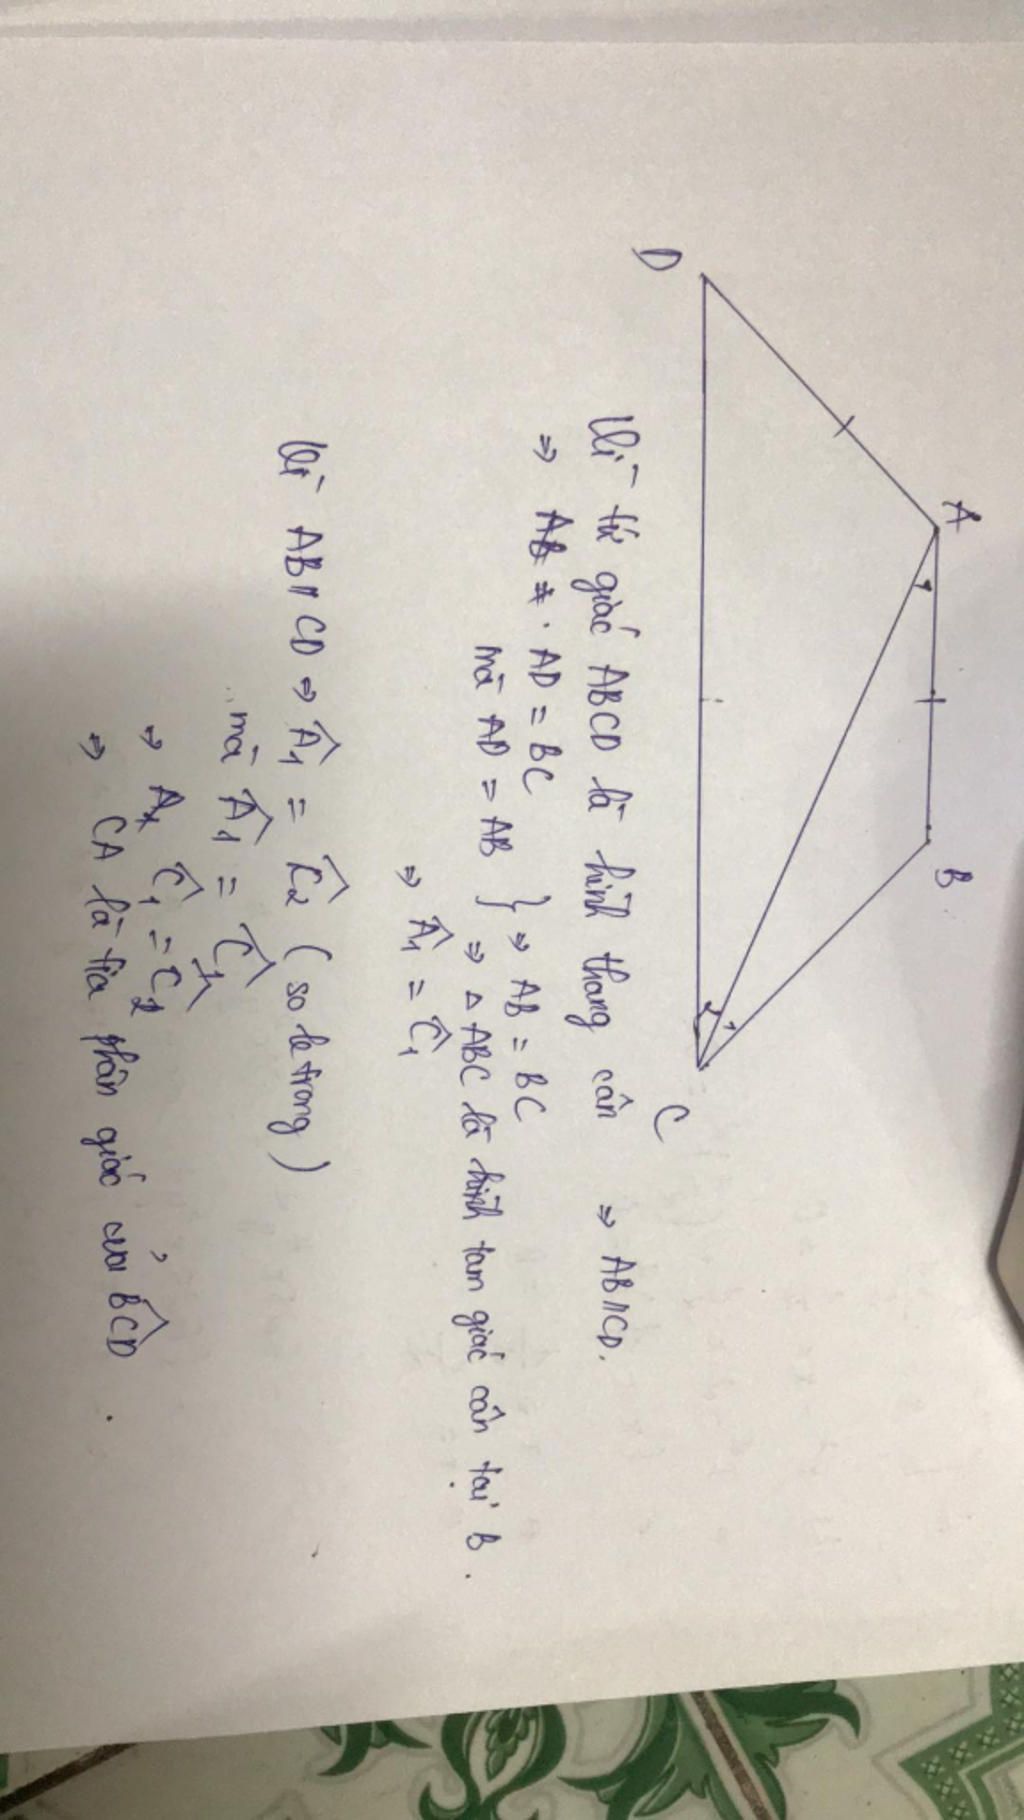 A
B
1
D
2
1
C
Vì tứ giác ABCD là hình thang cân ⇒ AB//CD.
⇒ AD = BC
mà AD = AB } ⇒ AB = BC
⇒ Δ ABC là hình tam giác cân tại B.
⇒ Â1 = Ĉ1
Vì AB//CD ⇒ Â1 = Ĉ2 (so le trong)
mà Â1 = Ĉ1
⇒ Ĉ1 = C2
⇒ CA là tia phân giác của BĈD.